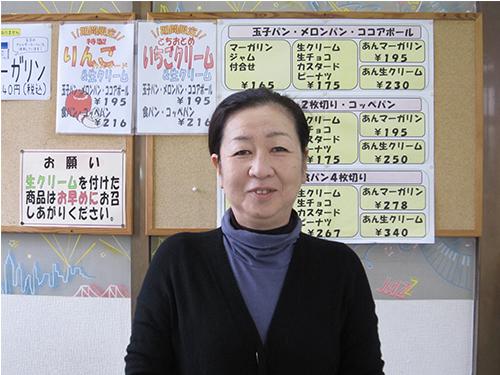 ーガリン
40円(税込)
お願い
生クリームを付けた
商品はお早めにお召
しあがりください。
期間限定
特製
りんご
&生クリーム
玉子パン・メロンパン・ココアボール
¥195
食パン・コッペパン
¥216
期間限定
こちおとめ
いちごクリーム
&生クリーム
玉子パン・メロンパン・ココアボール
¥195
食パン・
¥216
玉子パン・メロンパン・ココアボール
マーガリン
ジャム
付合せ
¥165
生クリーム
生チョコ
カスタード
ピーナツ
¥175
あんマーガリン
¥195
あん生クリーム
¥230
2枚切り・コッペパン
生クリーム
生チョコ
カスタード
ピーナツ
¥175
あんマーガリン
¥195
あん生クリーム
¥250
パン4枚切り
クリーム
生チョコ
カスタード
ピーナツ
¥267
あんマーガリン
¥278
あん生クリーム
¥340
JAZZ